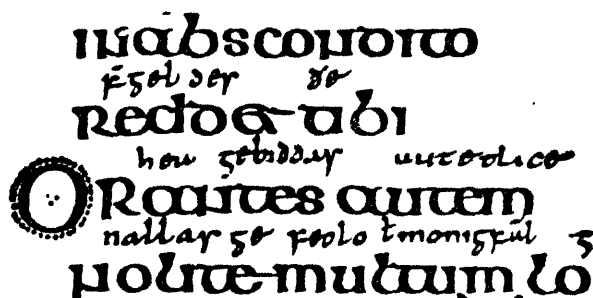 in abscondito
f̄geldes ðe
reddet tibi
gebiddas uutedlice
Orantes autem
nallas ge feolo ł monigfal g
nolite multum lo